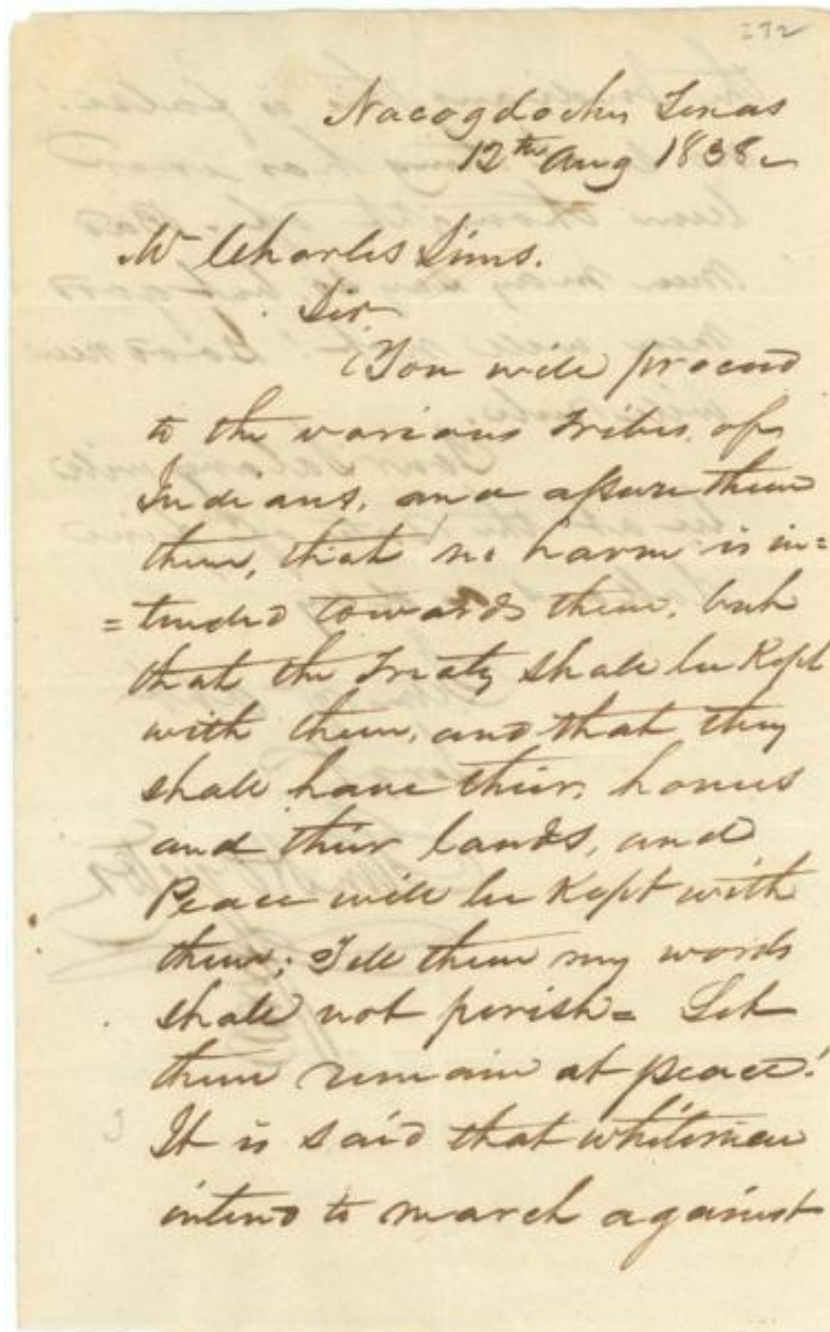 272
Nacogdoches Texas
12th Aug 1838
Mr Charles Sims.
Sir
You will proceed
to the various tribes of
Indians, and assure them
them, that no harm is in=
=tended towards them, but
that the Treaty shall be Kept
with them, and that they
shall have their homes
and their lands, and
Peace will be Kept with
them; Tell them my words
shall not perish= Let
them remain at peace!
It is said that whitemen
intend to march against